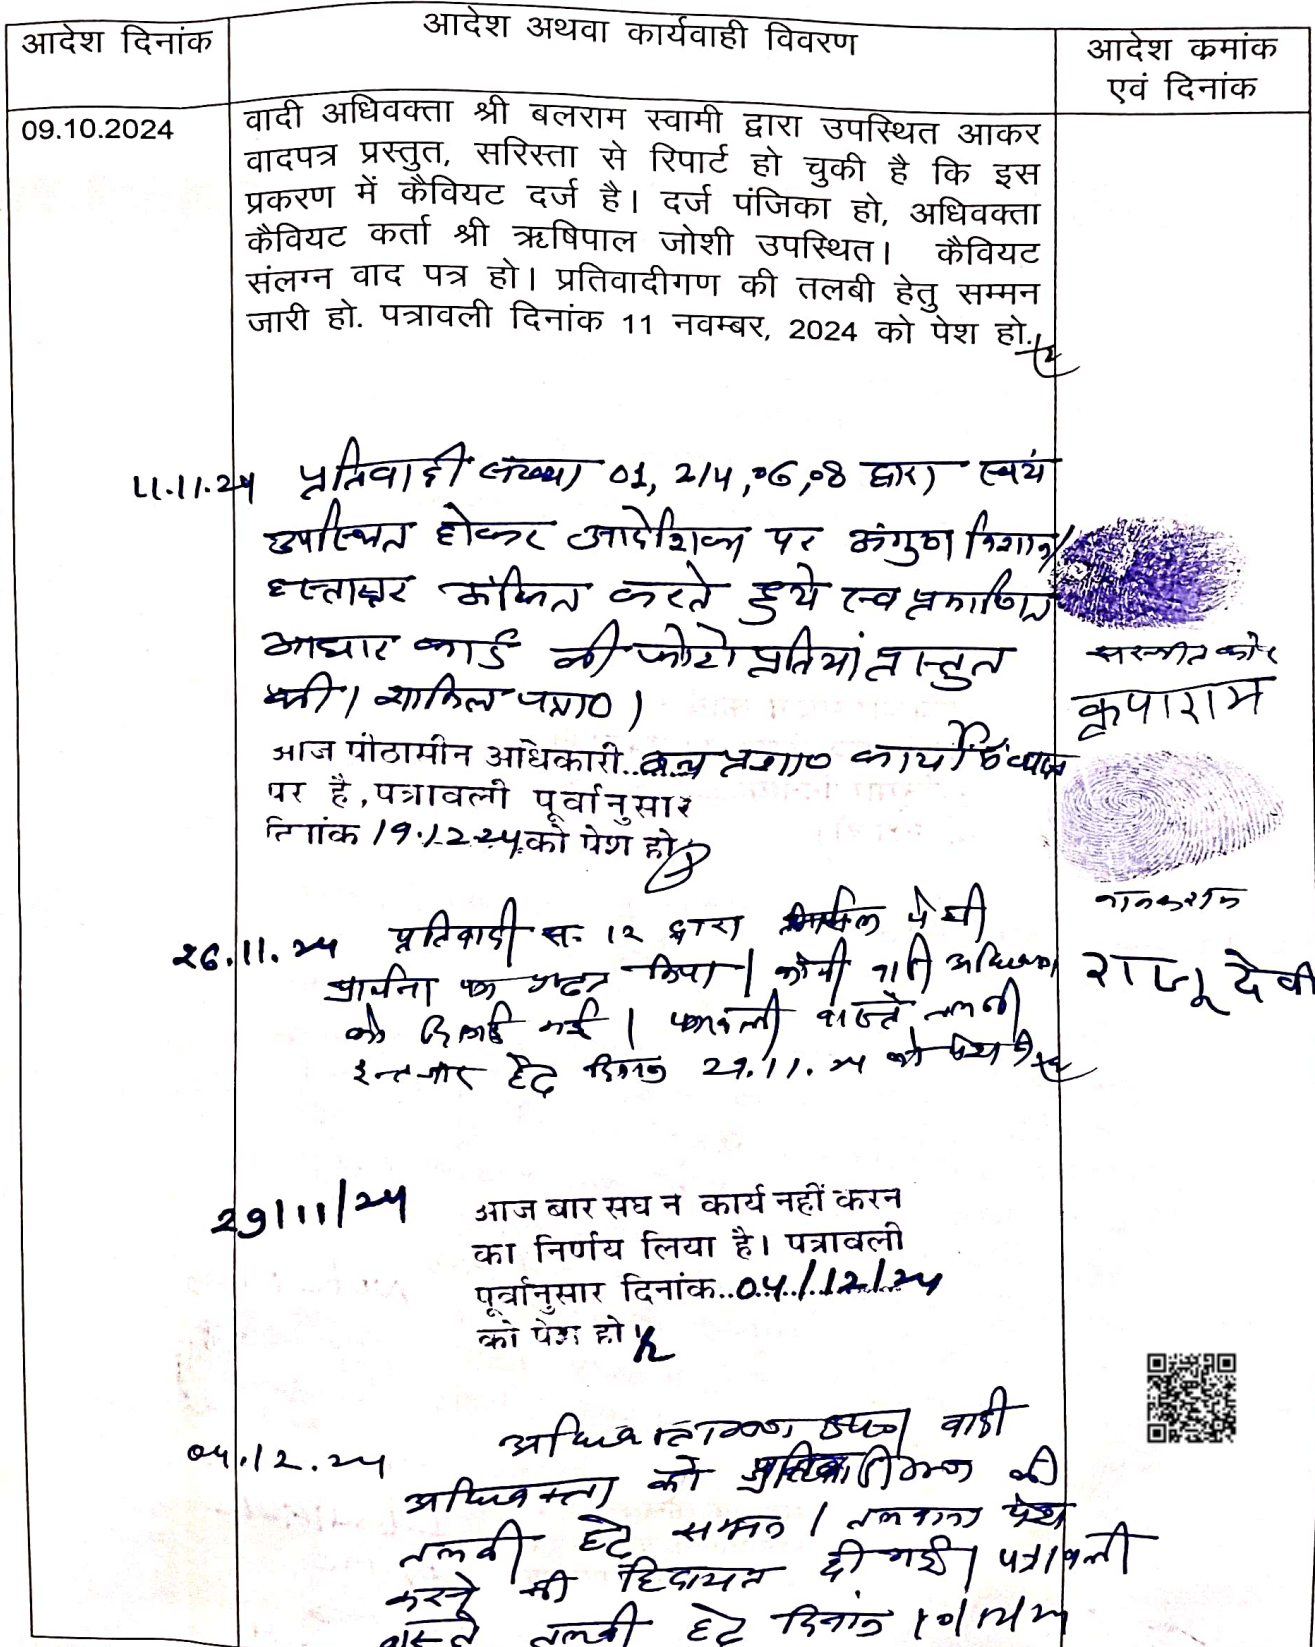 आदेश दिनांक
आदेश अथवा कार्यवाही विवरण
आदेश क्रमांक
एवं दिनांक
09.10.2024
वादी अधिवक्ता श्री बलराम स्वामी द्वारा उपस्थित आकर
वादपत्र प्रस्तुत, सरिस्ता से रिपार्ट हो चुकी है कि इस
प्रकरण में कैवियट दर्ज है। दर्ज पंजिका हो, अधिवक्ता
कैवियट कर्ता श्री ऋषिपाल जोशी उपस्थित। कैवियट
संलग्न वाद पत्र हो। प्रतिवादीगण की तलबी हेतु सम्मन
जारी हो. पत्रावली दिनांक 11 नवम्बर, 2024 को पेश हो.
11.11.24 प्रतिवादी संख्या 01, 2/4, 06, 08 द्वारा स्वयं
उपस्थित होकर आदेशिका पर अंगुठा निशान/
हस्ताक्षर अंकित करते हुये स्व प्रमाणित
आधार कार्ड की फोटो प्रतियां प्रस्तुत
की। शामिल पत्रा०।
सरजीत कौर
कृपाराम
आज पीठासीन अधिकारी.. अन्य प्रशा० कार्यो
पर है, पत्रावली पूर्वानुसार
दिनांक 19.12.24 को पेश हो
नानकराम
राजू देवी
26.11.24 प्रतिवादी स. 12 द्वारा पेशी
प्रार्थना पत्र किया। कोपी वादी
को दिलाई गई। पत्रावली वास्ते तलबी
इन्तजार हेतु दिनांक 29.11.24 को पेश हो
29/11/24
आज बार सघ न कार्य नहीं करन
का निर्णय लिया है। पत्रावली
पूर्वानुसार दिनांक..04/12/24
को पेश हो
04.12.24 अधिवक्तागण उप० वादी
अधिवक्ता को प्रतिवादीगण की
तलबी हेतु सम्मन / तलबाना पेश
करने की हिदायत दी गई। पत्रावली
वास्ते तलबी हेतु दिनांक 10/12/24